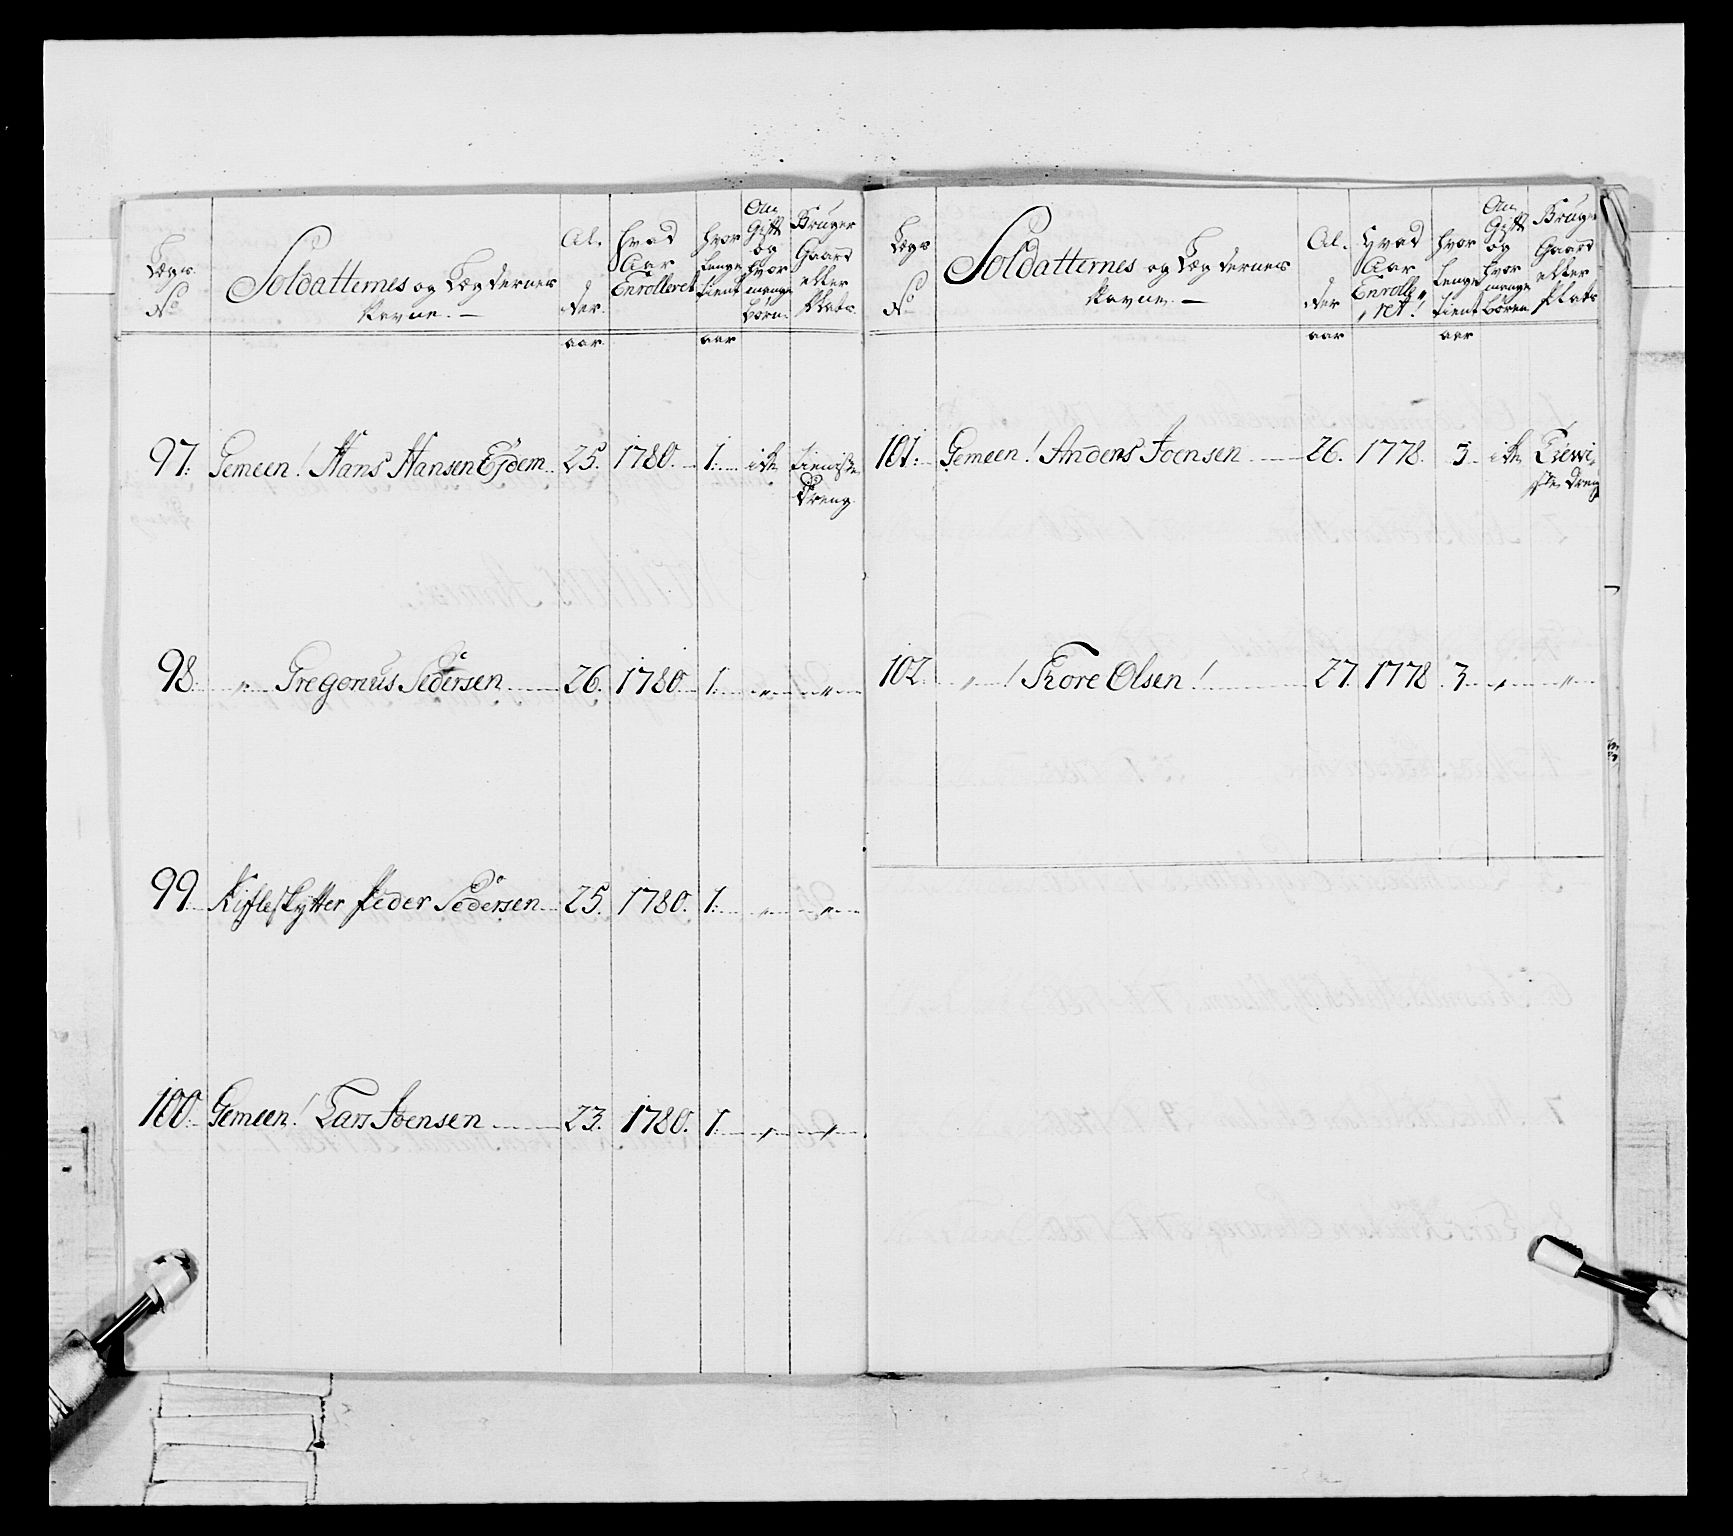 Lægs No
Soldatternes og Lægdernes Navne. —
Al, der.
Hvad Aar Enrolleret
hvor Lenge tient
Om Gift og hvor mange børn.
Bruger Gaard eller Plads.
aar
aar
97. Gemeen! Hans Hansen Ejdem 25. 1780. 1. ikke tieneste Dreng
98. " Gregorius Pedersen 26. 1780 1. " "
99 Rifleskytter Peder Pedersen 25. 1780. 1. " "
100. Gemeen! Lars Joensen 23. 1780. 1. " "
Lægs No
Soldatternes og Lægdernes Navne. —
Al. der
Hvad Aar Enrolle„ „ret!
hvor Lenge tient
Om Gift og hvor mange børen
Bruger Gaard eller Plads
aar
aar
101. Gemeen! Anders Joensen 26. 1778. 3 ikke Dreng
102. " ! Tore Olsen! 27. 1778 3 " "